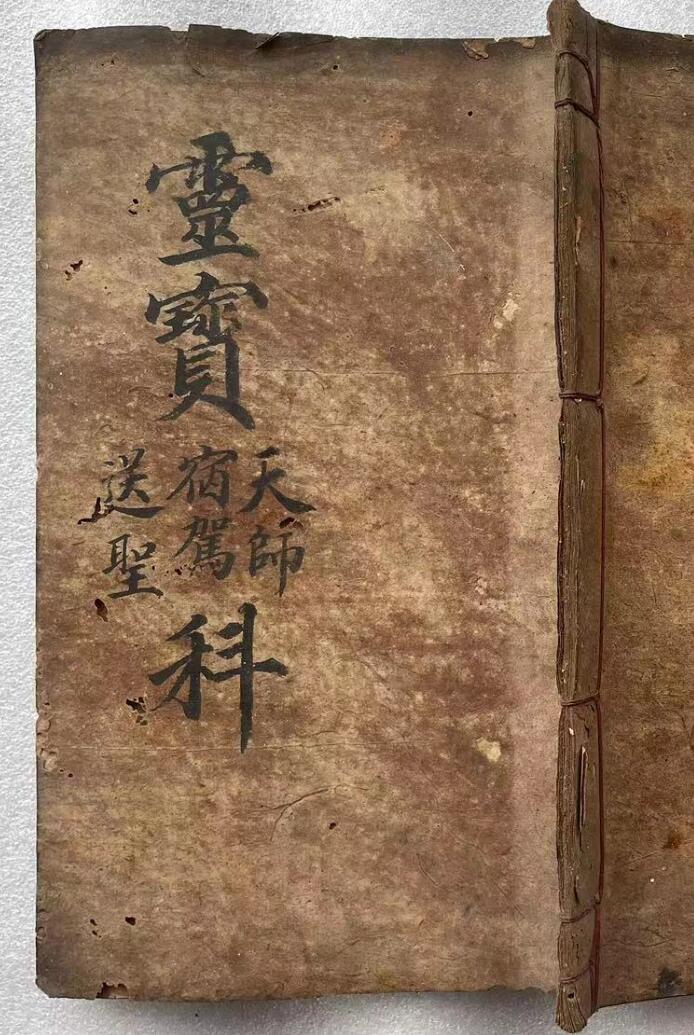 靈寶
天師
宿駕
送聖
科